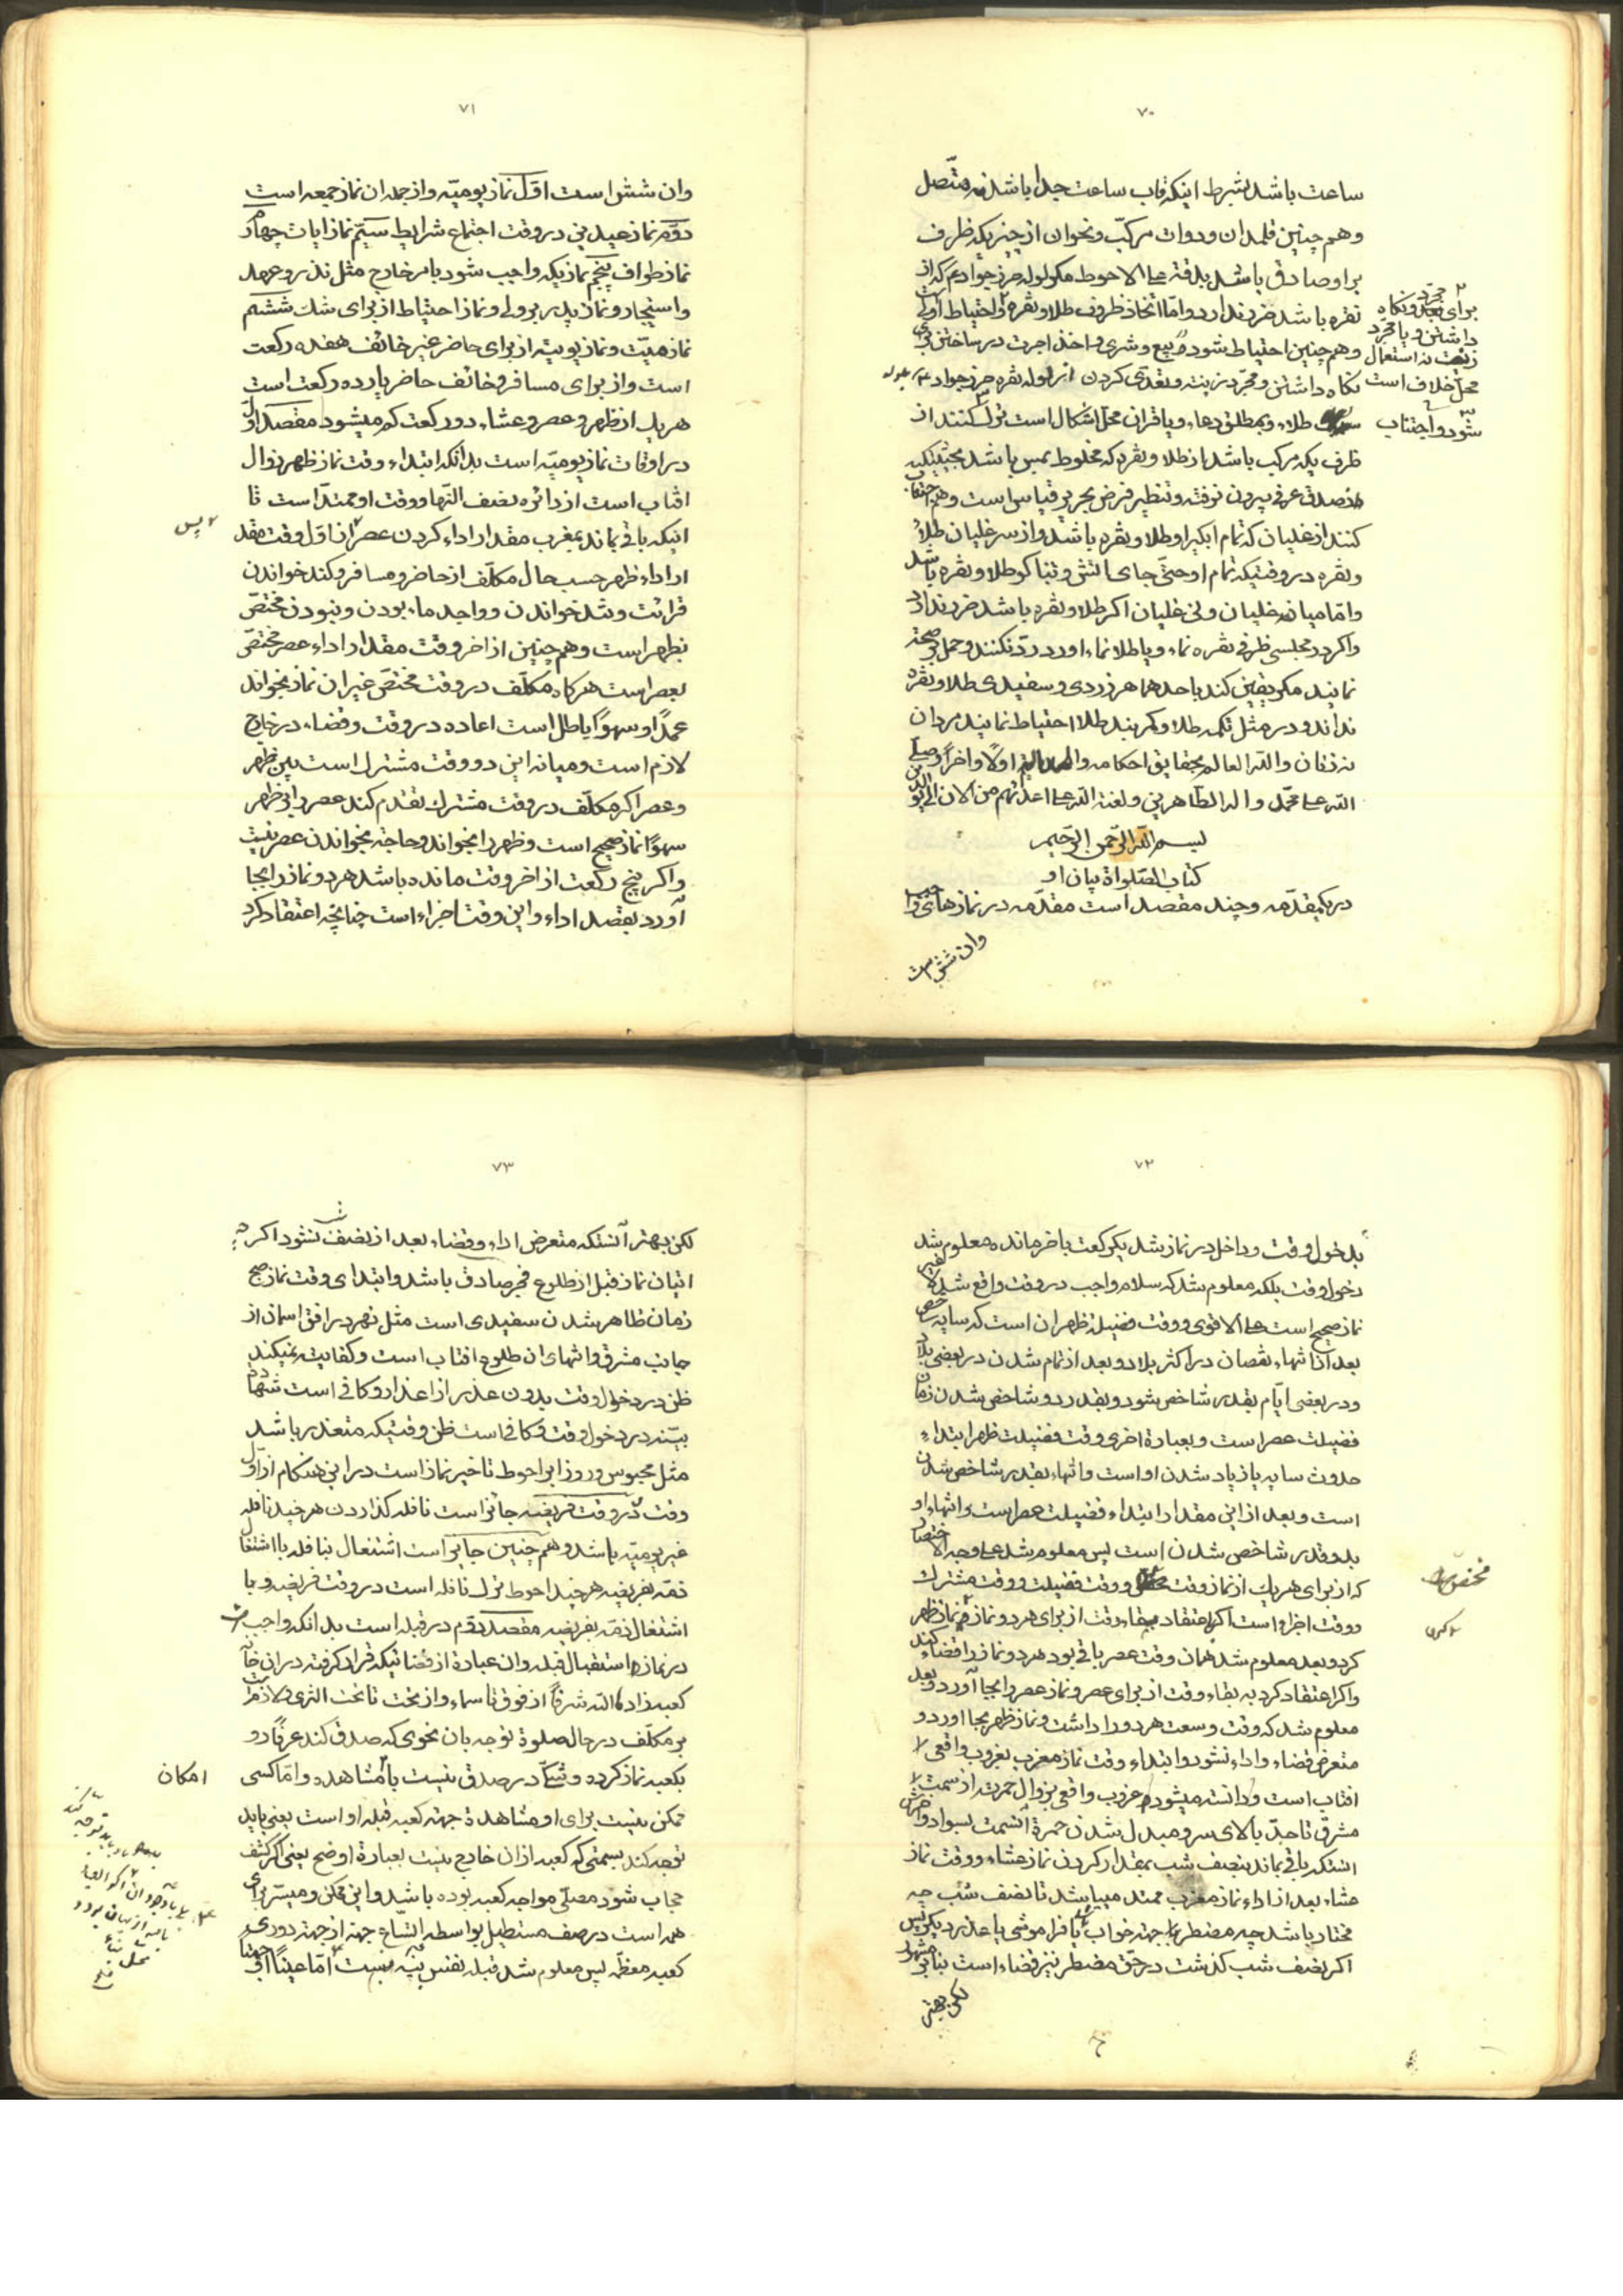 ۷۰
ساعت باشد بشرط اینکه قاب ساعت جدا باشد نه متّصل
وهم چنین قلمدان ودوات مرکّب ونحوان از چیزیکه ظرف
براو صادق باشد بلد فنه علی الاحوط مکر لوله حرز جواد ع که از
نقره باشد ضرر ندارد وامّا اتخاذ ظروف طلا ونقره واحتیاط اولی
وهم چنین احتیاط شود در بیع وشری واخذ اجرت در ساختن
نکاه داشتن ومجرّد زینت وتعدّی کردن از لوله نقره حرز جواد
طلاء وبمطلق دعاء ویا قران محلّ اشکال است ترک کنند از
ظرف یکه مرکب باشد از طلا ونقره که مخلوط بمس باشد بحیثیتیکه
از صدق عرفی بیرون نرفته وتنظیر فرض بحریر قیاس است وهم
کنند از غلیان که تمام ابکیر او طلا ونقره باشد واز سر غلیان طلا
ونقره در وقتیکه تمام او حتّی جای اتش وتنباکو طلا ونقره باشد
وامّا میانه غلیان ونی غلیان اکر طلا ونقره باشد ضرر ندارد
واکر در مجلسی ظرفی نقره نماء ویا طلا نماء اورد ردّ نکنند وحمل بر صحة
نمایند مکر یقین کند باحدهما هر زردی وسفیدی طلا ونقره
نداند ودر مثل تکمه طلا وکمربند طلا احتیاط نمایند مردان
نه زنان والله العالم بحقایق احکامه والحمد لله اولًا واخرًا وصلّی
الله علی محمّد واله الطّاهرین ولعنة الله علی اعدائهم من الان الی یوم الدین
برای
داشتن ویا مجرّد
زینت نه استعمال
محلّ خلاف است
شود واجتناب
بسم الله الرّحمن الرّحیم
کتاب الصّلواة بیان او
در یکمقدّمه وچند مقصد است مقدّمه در نمازهای واجب
وان شش است
۷۱
وان شش است اوّل نماز یومیّه واز جمله ان نماز جمعه است
دوّم نماز عیدین در وقت اجتماع شرایط سیّم نماز ایات چهارم
نماز طواف پنجم نمازیکه واجب شود بامر خارج مثل نذر وعهد
واستیجار ونماز پدر بر ولی ونماز احتیاط از برای شک ششم
نماز میّت ونماز یومیّه از برای حاضر غیر خائف هفده رکعت
است واز برای مسافر وخائف حاضر یازده رکعت است
هر یک از ظهر وعصر وعشاء دو رکعت کم میشود مقصد اوّل
در اوقات نماز یومیّه است بدانکه ابتداء وقت نماز ظهر زوال
افتاب است از دائره نصف النّهار ووقت او ممتدّ است تا
اینکه باقی بماند بمغرب مقدار اداء کردن عصر از اوّل وقت مقد
ار اداء ظهر حسب حال مکلّف از حاضر ومسافر وکند خواندن
قرائت وتند خواندن وواجد ماء بودن ونبودن مختصّ
بظهر است وهم چنین از اخر وقت مقدار اداء عصر مختصّ
بعصر است هرکاه مکلّف در وقت مختصّ غیر ان نماز بخواند
عمدًا وسهوًا باطل است اعاده در وقت وقضاء در خارج
لازم است ومیانه این دو وقت مشترک است بین ظهر
وعصر اکر مکلّف در وقت مشترک تقدم کند عصر را بر ظهر
سهوًا نماز صحیح است وظهر را بخواند وحاجة بخواندن عصر نیست
واکر پنج رکعت از اخر وقت مانده باشد هر دو نماز را بجا
آورد بقصد اداء واین وقت اجزاء است چنانچه اعتقاد کرد
پس
۷۲
بدخول وقت وداخل در نماز شد یکرکعت باخر مانده معلوم شد
دخول وقت بلکه معلوم شد که سلام واجب در وقت واقع شد
نماز صحیح است علی الاقوی ووقت فضیلة ظهر ان است که سایه شاخص
بعد از انتهاء نقصان در اکثر بلاد وبعد از تمام شدن در بعضی بلاد
ودر بعضی ایّام بقدر شاخص شود وبقدر دو شاخص شدن زمان
فضیلت عصر است وبعبارة اخری وقت فضیلت ظهر ابتداء
حدوث سایه یا زیاد شدن او است وانتهاء بقدر شاخص شدن
است وبعد از این مقدار ابتداء فضیلت عصر است وانتهاء او
بدو قدر شاخص شدن است پس معلوم شد علی وجه الاختصار
که از برای هر یک از نماز وقت ووقت فضیلت ووقت مشترک
ووقت اجزاء است اکر اعتقاد ببقاء وقت از برای هر دو نماز نماز ظهر
کرد وبعد معلوم شد همان وقت عصر باقی بود هر دو نماز را قضاء کند
واکر اعتقاد کرد به بقاء وقت از برای عصر ونماز عصر را بجا آورد وبعد
معلوم شد که وقت وسعت هر دو را داشت ونماز ظهر بجا اورد و
متعرض قضاء واداء نشود وابتداء وقت نماز مغرب بغروب واقعی
افتاب است ودانسته میشود غروب واقعی بزوال حمرت از سمت
مشرق تا حدّ بالای سر ومبدل شدن حمرة انسمت بسواد واخرش
انستکه باقی بماند بنصف شب بمقدار کردن نماز عشاء ووقت نماز
عشاء بعد از اداء نماز مغرب ممتد میباشد تا نصف شب چه
مختار باشد چه مضطر بجهة خواب یا فراموشی یا عذر دیکر پس
اکر نصف شب کذشت در حقّ مضطر نیز قضاء است بنابر مشهور
لکن بهتر
۷۳
لکن بهتر آنستکه متعرض اداء وقضاء بعد از نصف شب نشود اکر چه
اتیان نماز قبل از طلوع فجر صادق باشد وابتدای وقت نماز صبح
زمان ظاهر شدن سفیدی است مثل نهر در افق اسمان از
جانب مشرق وانتهای ان طلوع افتاب است وکفایت نمیکند
ظن در دخول وقت بدون عذر از اعذار وکافی است شهادة
بیّنه در دخول وقت وکافی است ظن وقتیکه متعذر باشد
مثل محبوس وروز ابر احوط تاخیر نماز است در این هنکام از اوّل
وقت در وقت فریضه جائز است نافله کذاردن هر چند نافله
غیر یومیّه باشد وهم چنین جایز است اشتغال بنافله با اشتغال
ذمّه بفریضه هر چند احوط ترک نافله است در وقت فریضه وبا
اشتغال ذمّه بفریضه مقصد دوّم در قبله است بدانکه واجب است
در نماز استقبال قبله وان عبارة از فضائیکه قرار کرفته در ان خانه
کعبه زادها الله شرفًا از فوق تا سماء واز تحت تا تحت الثری ولازم است
بر مکلّف در حال صلوة توجه بان نحوی که صدق کند عرفًا رو
بکعبه نماز کرده وشکّی در صدق نیست با مشاهده وامّا کسی
ممکن نیست برای او مشاهدة جهة کعبه قبله او است یعنی باید
توجه کند بسمتی که کعبه از ان خارج نیست بعبارة اوضح یعنی اکر کشف
حجاب شود مصلّی مواجه کعبه بوده باشد واین ممکن ومیسّر برای
همه است در صف مستطیل بواسطه اتّساع جهة از جهة دوری
کعبه معظّمه پس معلوم شد قبله نفس بنیّه نیست امّا عینًا او
امکان